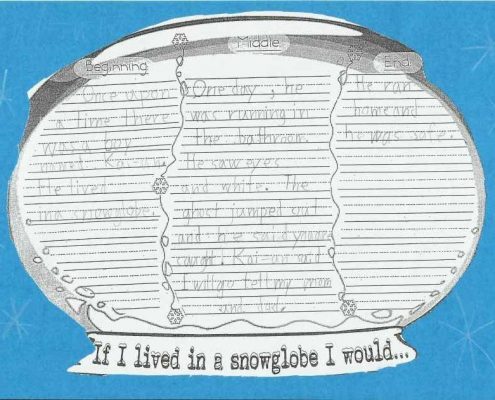 Beginning
Once upon
a time there
was a boy
Kai-un.
He lived
in a snowglobe.
Middle
One day, he
was running in
the bathroom.
He saw eyes
and white. The
ghost jumped out
and he said your
caught. Kai-un said
I will go tell my mom
and dad.
End
He ran
home and
he was safe.
If I lived in a snowglobe I would...